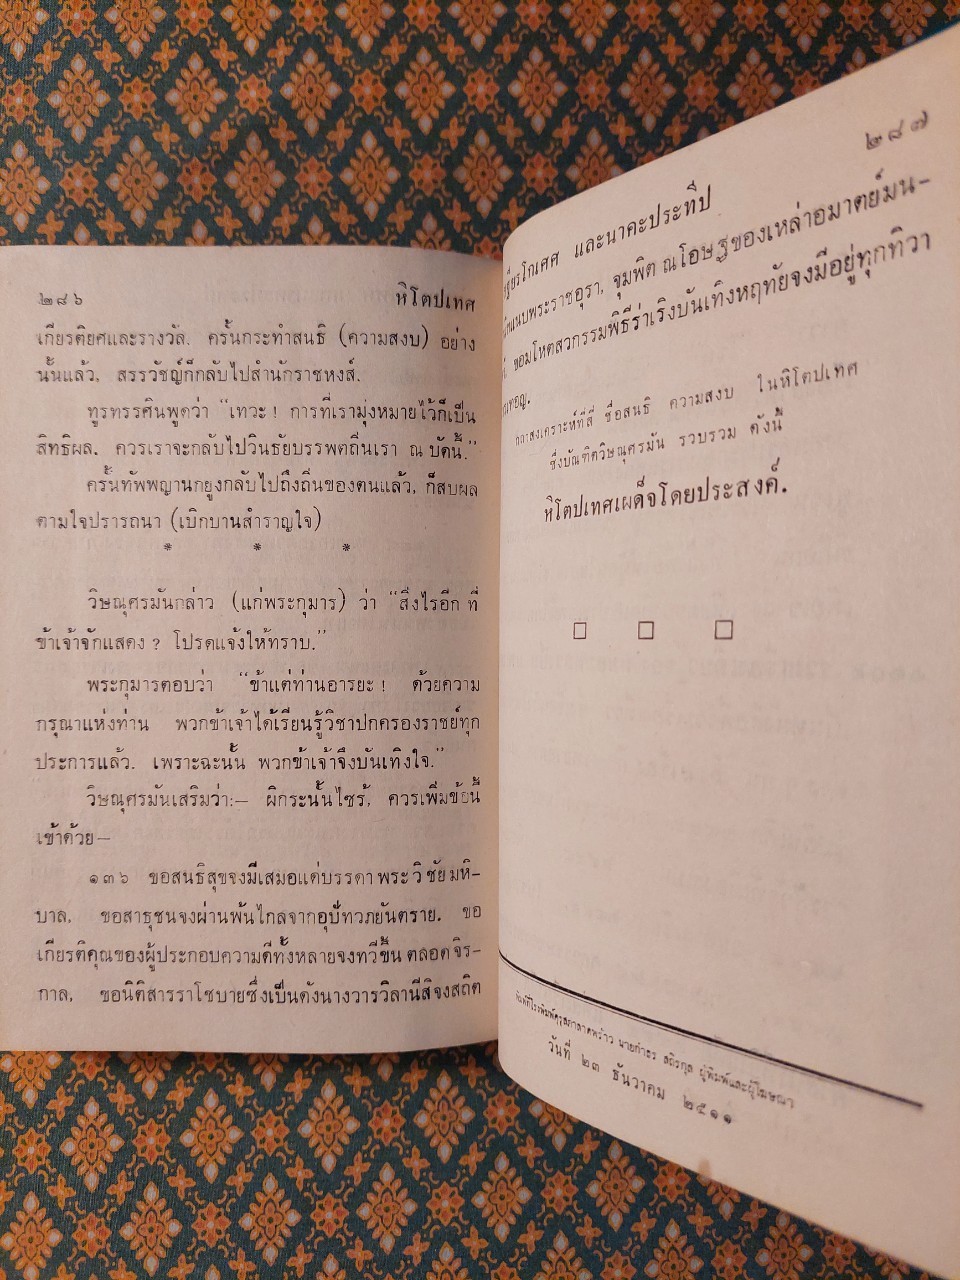 ๒๘๖ หิโตปเทศ
เกียรติยศและรางวัล. ครั้นกระทำสนธิ (ความสงบ) อย่าง
นั้นแล้ว, สรรวัชญ์ก็กลับไปสำนักราชหงส์.
ทูรทรรศินพูดว่า “เทวะ! การที่เรามุ่งหมายไว้ก็เป็น
สิทธิผล. ควรเราจะกลับไปวินธัยบรรพตถิ่นเรา ณ บัดนี้.”
ครั้นทัพพญานกยูงกลับไปถึงถิ่นของตนแล้ว, ก็สบผล
ตามใจปรารถนา (เบิกบานสำราญใจ)
* * *
วิษณุศรมันกล่าว (แก่พระกุมาร) ว่า “สิ่งไรอีก ที่
ข้าเจ้าจักแสดง? โปรดแจ้งให้ทราบ.”
พระกุมารตอบว่า “ข้าแต่ท่านอารยะ! ด้วยความ
กรุณาแห่งท่าน พวกข้าเจ้าได้เรียนรู้วิชาปกครองราชย์ทุก
ประการแล้ว. เพราะฉะนั้น พวกข้าเจ้าจึงบันเทิงใจ.”
วิษณุศรมันเสริมว่า:— ผิกระนั้นไซร้, ควรเพิ่มข้อนี้
เข้าด้วย—
๑๓๖ ขอสนธิสุขจงมีเสมอแด่บรรดาพระวิชัยมหิ-
บาล, ขอสาธุชนจงผ่านพ้นไกลจากอุปัทวภยันตราย. ขอ
เกียรติคุณของผู้ประกอบความดีทั้งหลายจงทวีขึ้นตลอดจิร-
กาล, ขอนิติสารราโชบายซึ่งเป็นดังนางวารวิลานีสิจงสถิต
๒๘๗
เสฐียรโกเศศ และนาคะประทีป
แนบพระราชอุรา, จุมพิต ณโอษฐของเหล่าอมาตย์มน-
ขอมโหตสวกรรมพิธีร่าเริงบันเทิงหฤทัยจงมีอยู่ทุกทิวา
เทอญ.
กถาสงเคราะห์ที่สี่ ชื่อสนธิ ความสงบ ในหิโตปเทศ
ซึ่งบัณฑิตวิษณุศรมัน รวบรวม ดังนี้
หิโตปเทศเผด็จโดยประสงค์.
พิมพ์ที่โรงพิมพ์คุรุสภาลาดพร้าว นายกำธร สถิรกุล ผู้พิมพ์และผู้โฆษณา
วันที่ ๒๓ ธันวาคม ๒๕๑๑